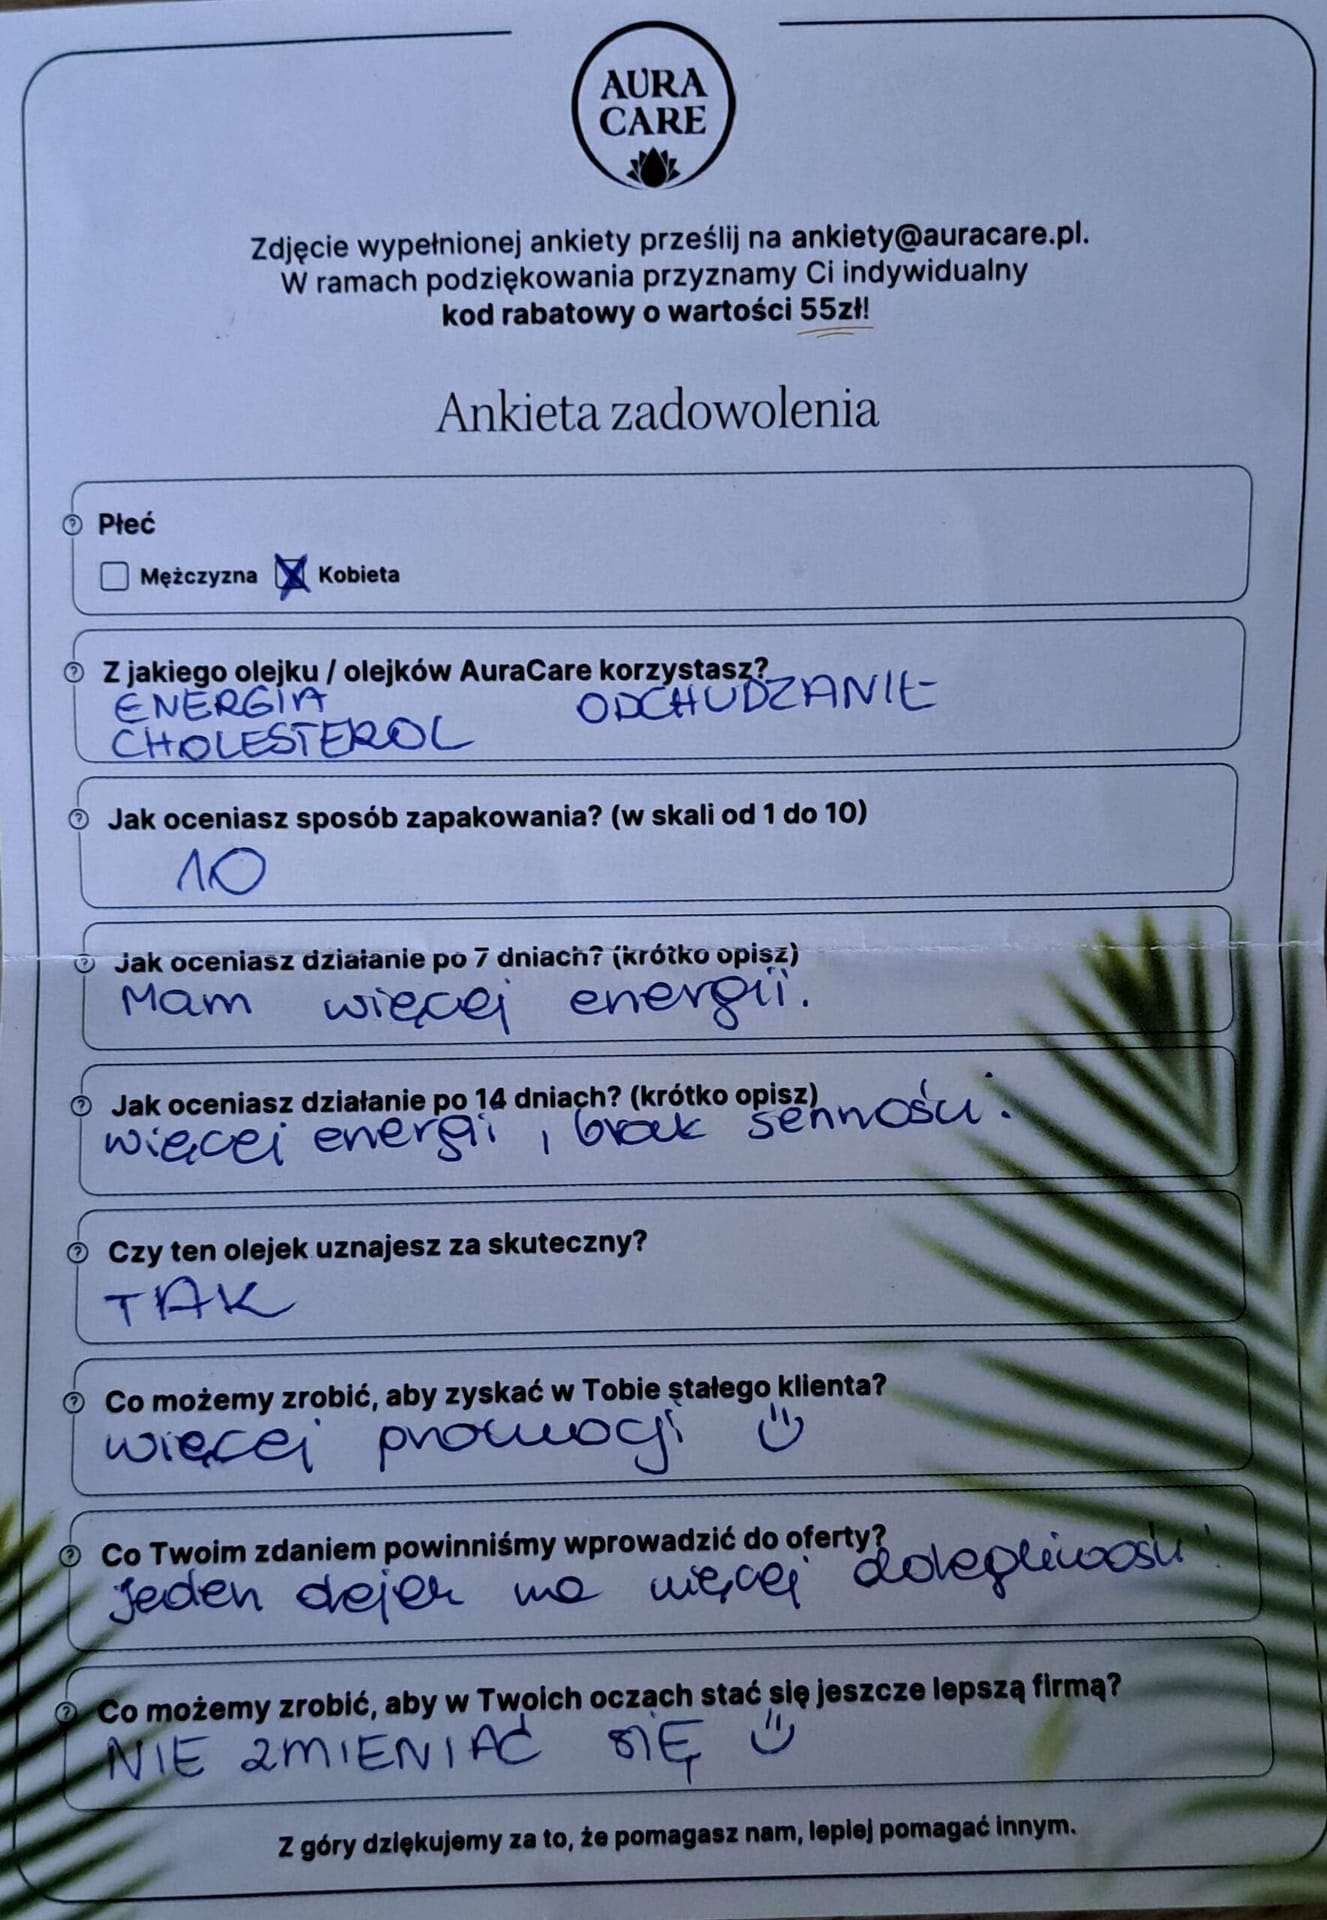 AURA
CARE
Zdjęcie wypełnionej ankiety prześlij na ankiety@auracare.pl.
W ramach podziękowania przyznamy Ci indywidualny
kod rabatowy o wartości 55zł!
Ankieta zadowolenia
Płeć
Mężczyzna Kobieta
Z jakiego olejku / olejków AuraCare korzystasz?
ENERGIA ODCHUDZANIE
CHOLESTEROL
Jak oceniasz sposób zapakowania? (w skali od 1 do 10)
10
Jak oceniasz działanie po 7 dniach? (krótko opisz)
Mam więcej energii.
Jak oceniasz działanie po 14 dniach? (krótko opisz)
więcej energii, brak senności.
Czy ten olejek uznajesz za skuteczny?
TAK
Co możemy zrobić, aby zyskać w Tobie stałego klienta?
więcej promocji
Co Twoim zdaniem powinniśmy wprowadzić do oferty?
Jeden olejek na więcej dolegliwości!
Co możemy zrobić, aby w Twoich oczach stać się jeszcze lepszą firmą?
NIE ZMIENIAĆ SIĘ
Z góry dziękujemy za to, że pomagasz nam, lepiej pomagać innym.